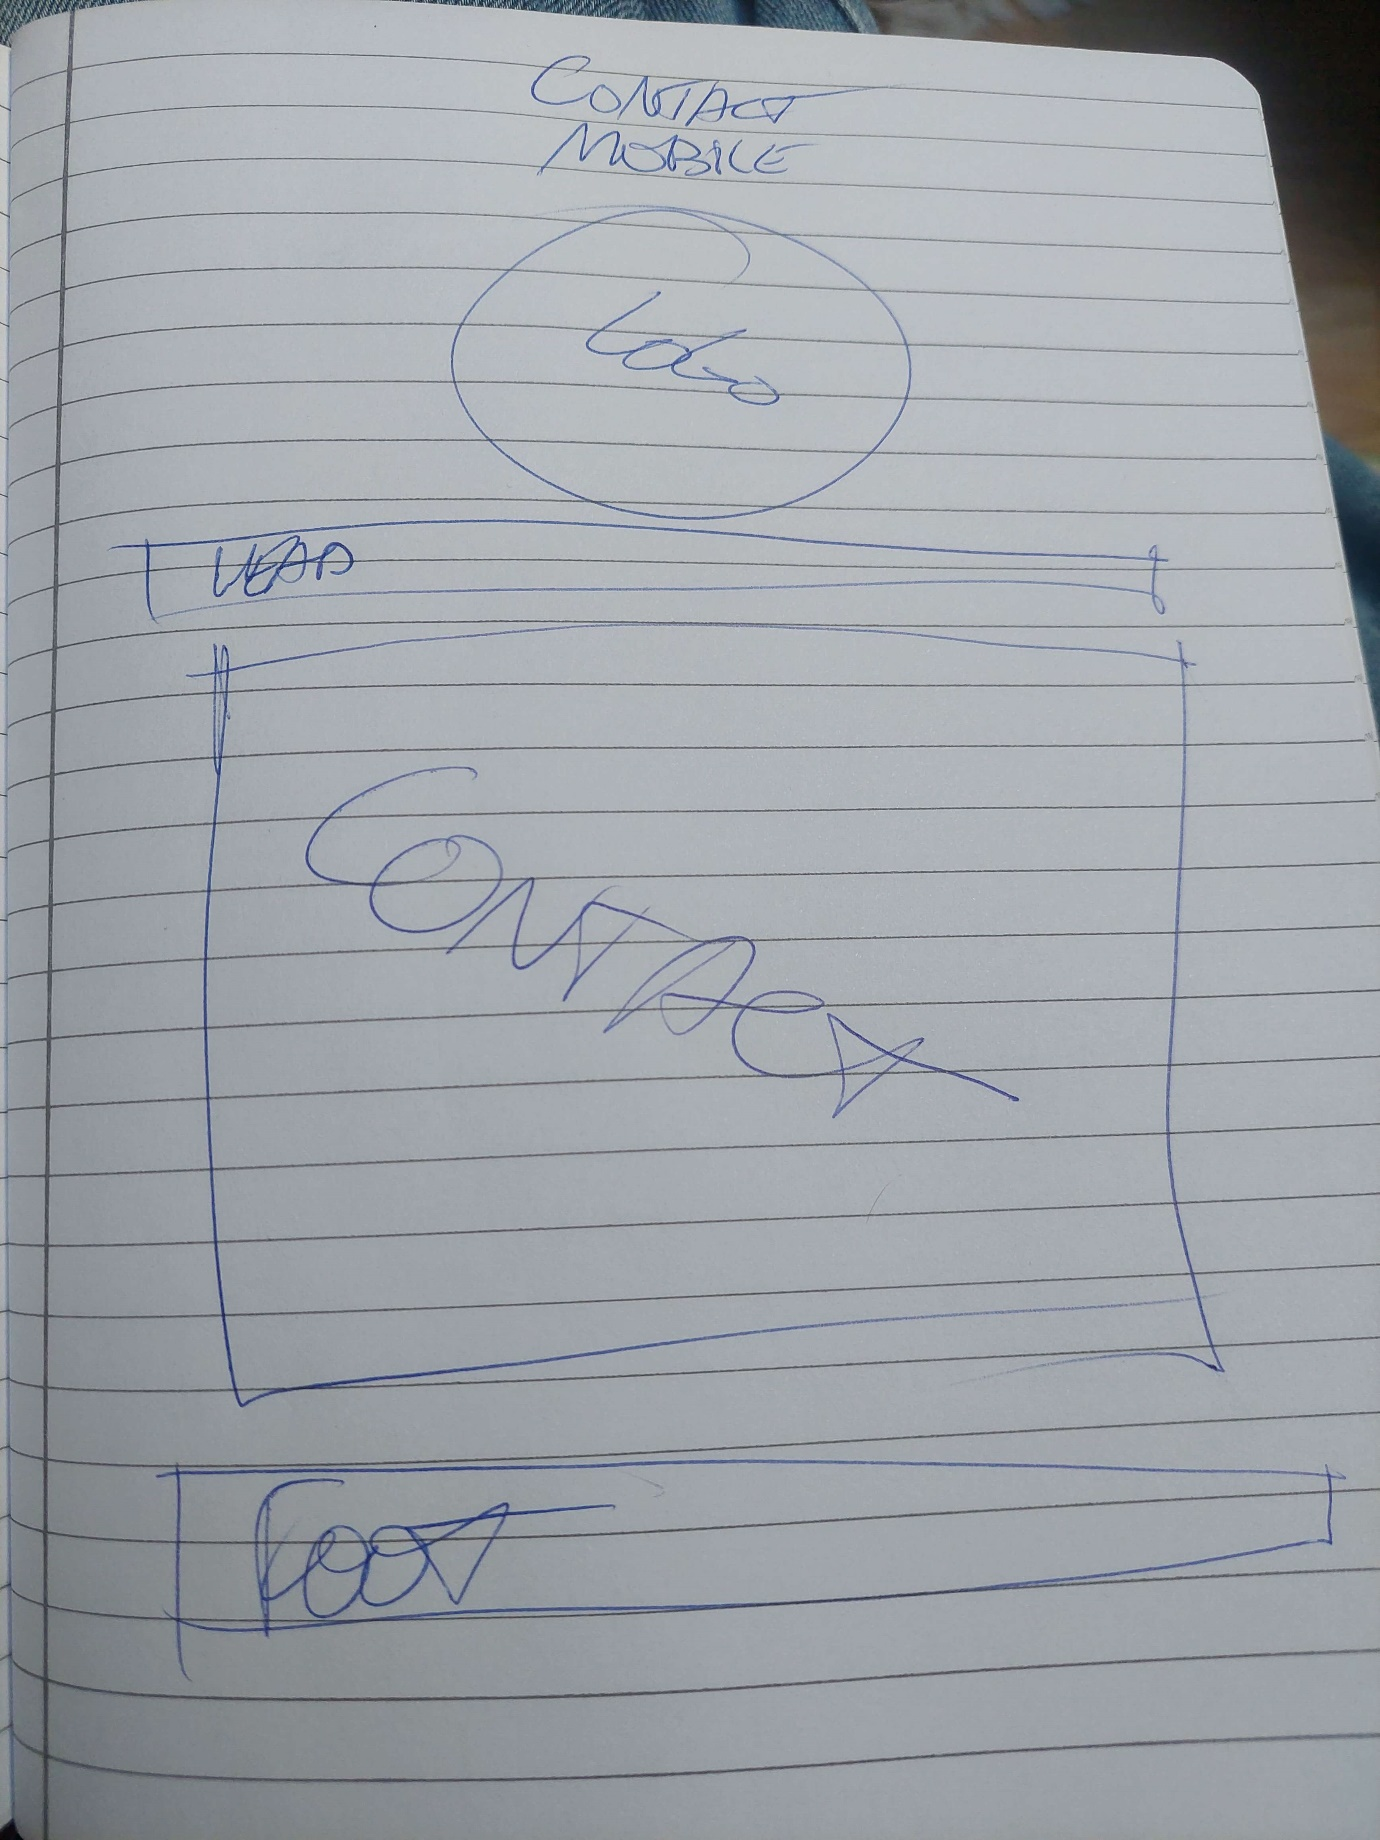 CONTACT
MOBILE
Logo
HEAD
CONTACT
FOOT